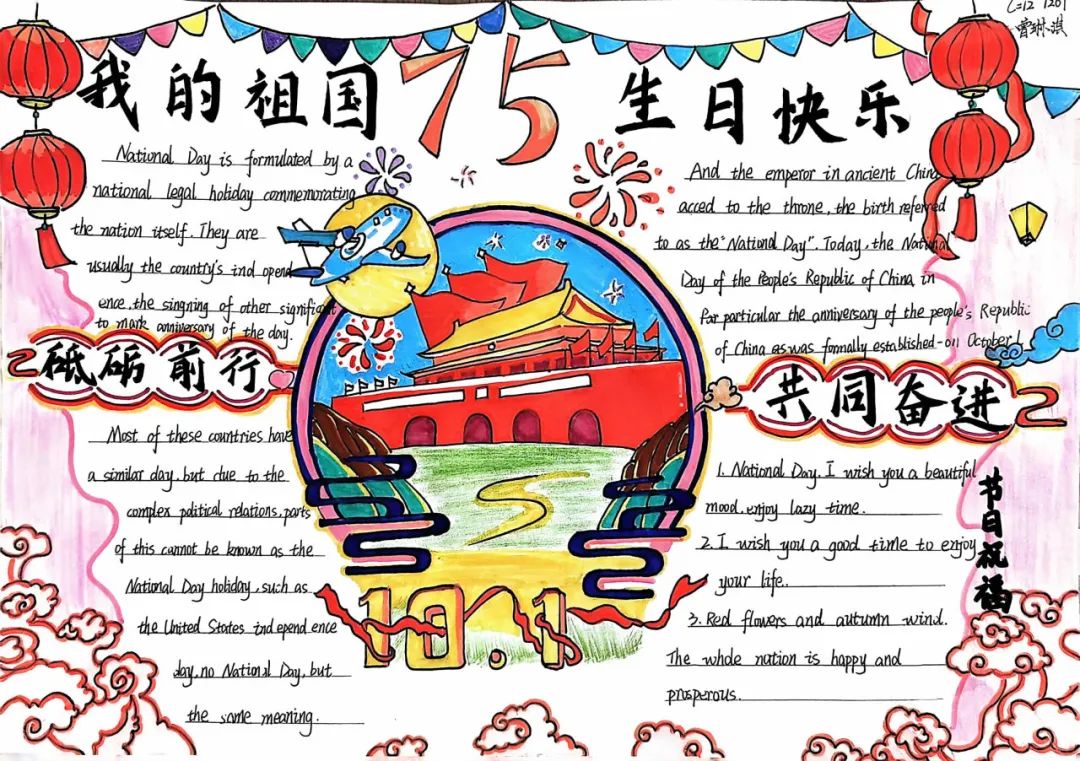 L=12 1201
曾琳淇
我的祖国75生日快乐
National Day is formulated by a
national legal holiday commemorating
the nation itself. They are
usually the country's ind opend
ence, the singning of other significant
to mark anniversary of the day.
砥砺前行
Most of these countries have
a similar day, but due to the
complex political relations, parts
of this cannot be known as the
National Day holiday, such as
the United States independence
day, no National Day, but
the same meaning.
And the emperor in ancient China
acced to the throne, the birth referred
to as the "National Day". Today, the National
Day of the People's Republic of China, in
Par particular the anniversary of the people's Republic
of China as was formally established-on October 1
共同奋进
1. National Day, I wish you a beautiful
mood, enjoy lazy time.
2. I wish you a good time to enjoy
your life.
3. Red flowers and autumn wind.
The whole nation is happy and
prosperous.
节日祝福
10.1